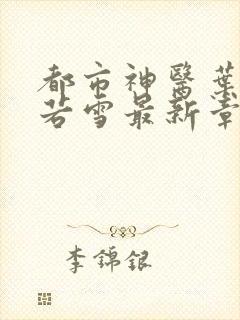 都市神醫葉
若雪最新章
李錦銀